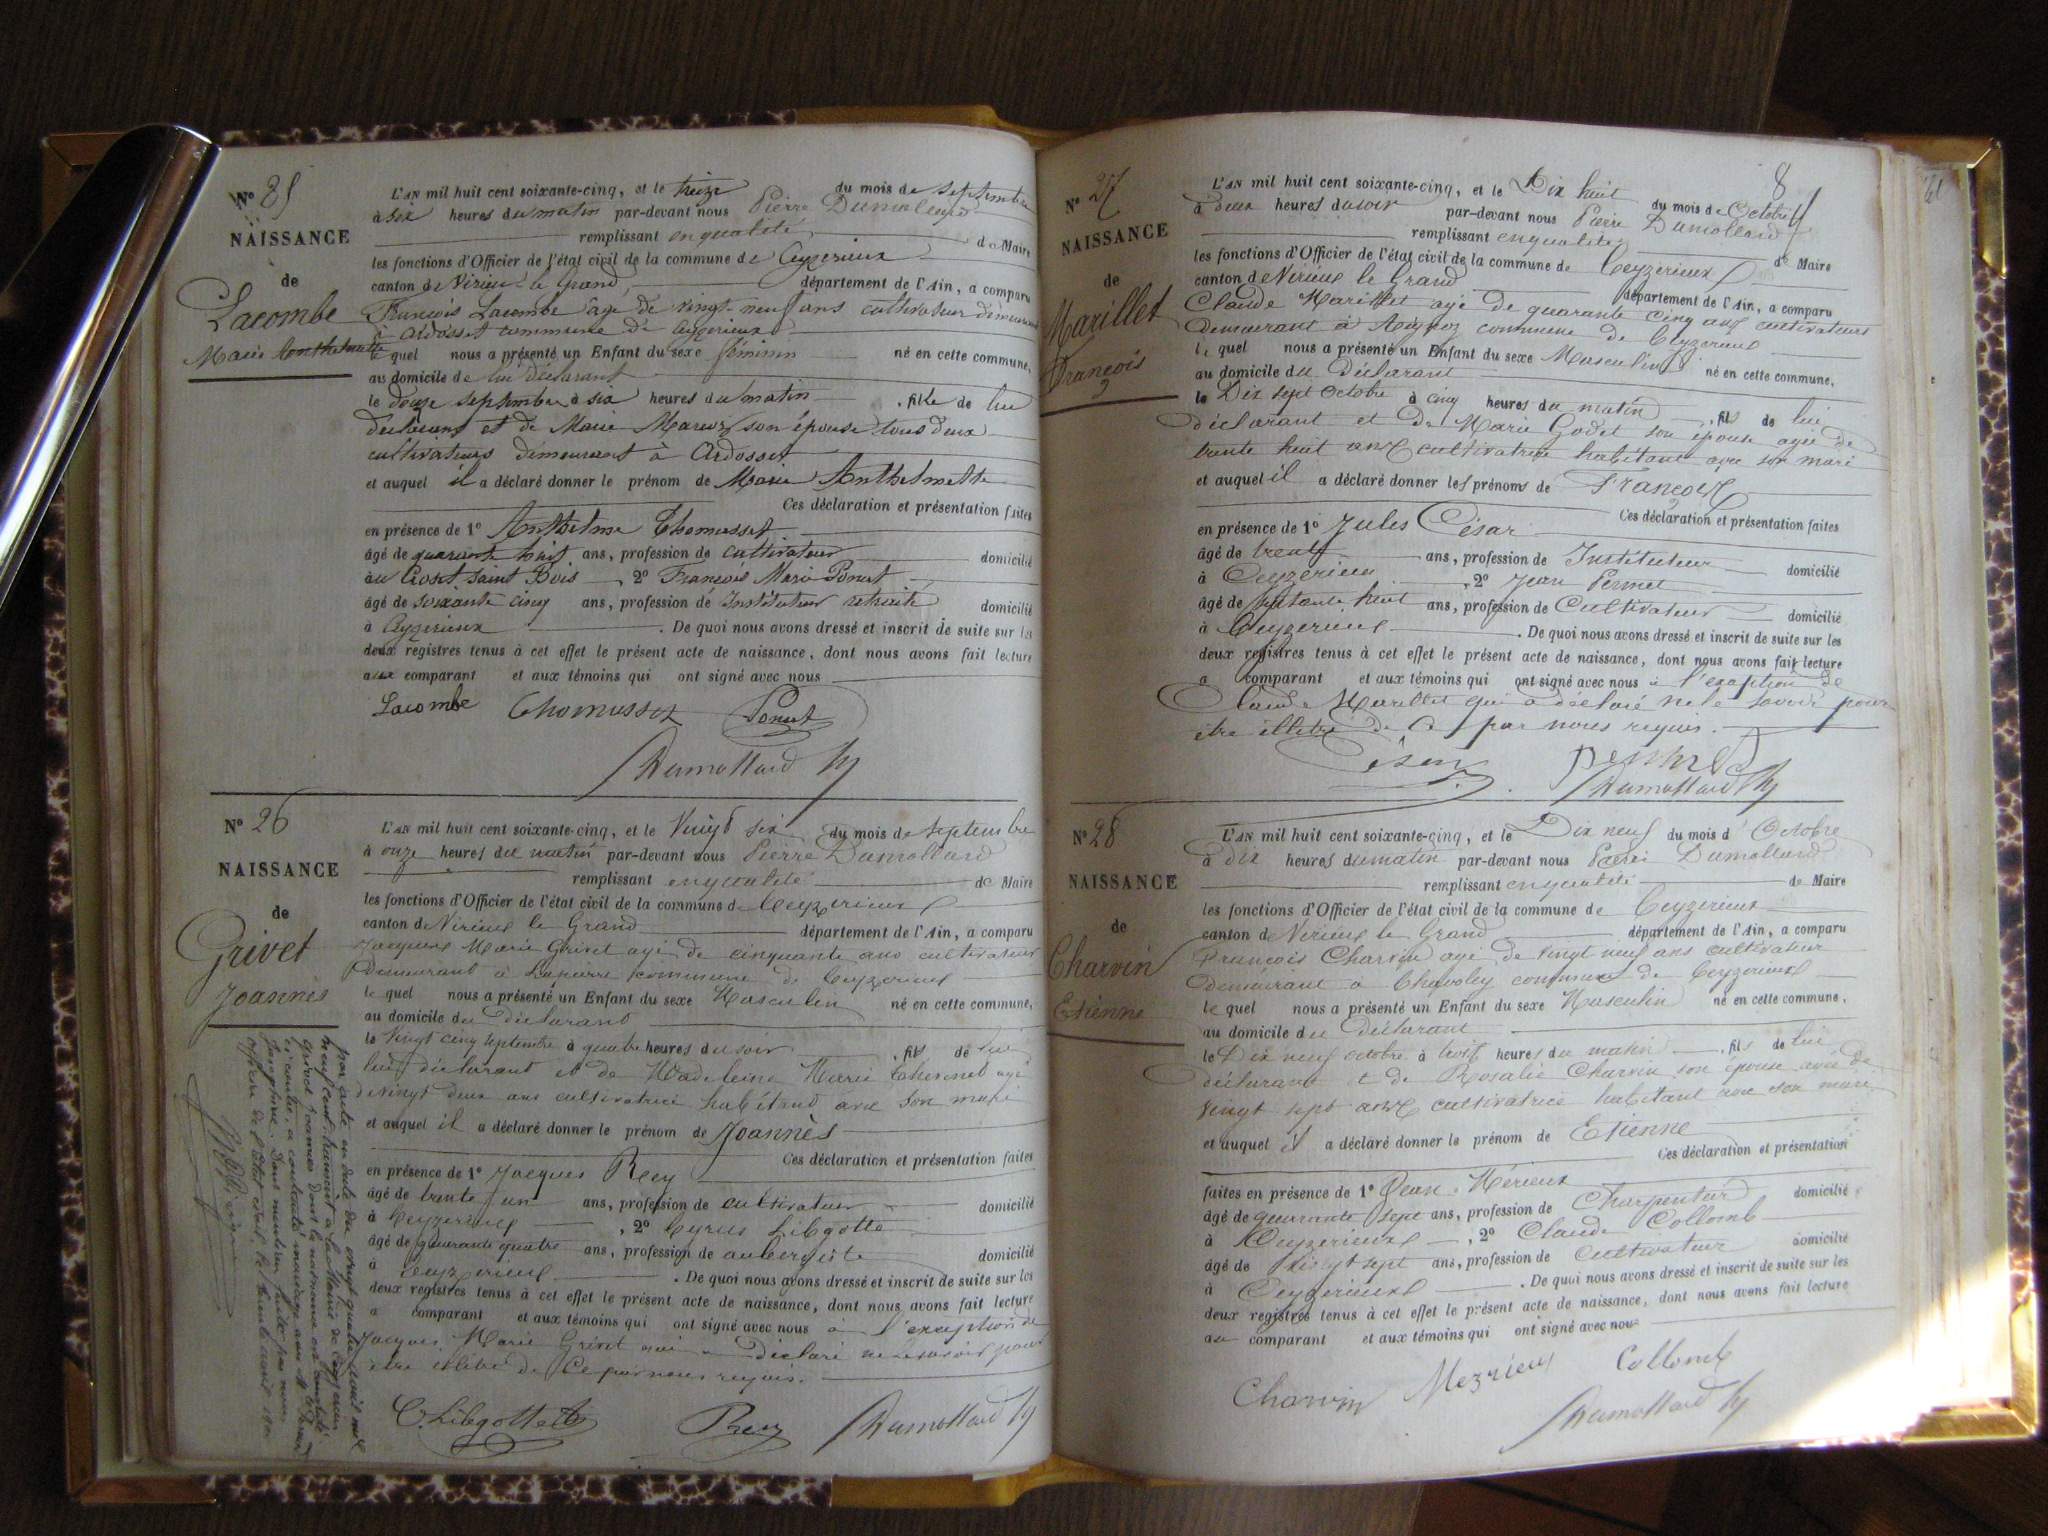 N° 25
NAISSANCE
de
Lacombe
Marie Anthelmette
L'AN mil huit cent soixante-cinq, et le treize du mois de septembre
à six heures du matin par-devant nous Pierre Dumollard
remplissant en qualité de Maire
les fonctions d'Officier de l'état civil de la commune de Ceyzerieux
canton de Virieu le Grand département de l'Ain, a comparu
François Lacombe âgé de vingt-neuf ans cultivateur demeurant
à Ardosset commune de Ceyzerieux
le quel nous a présenté un Enfant du sexe féminin né en cette commune,
au domicile de lui déclarant
le douze septembre à six heures du matin , fille de lui
déclarant et de Marie son épouse tous deux
cultivateurs demeurant à Ardosset
et auquel il a déclaré donner le prénom de Marie Anthelmette
Ces déclaration et présentation faites
en présence de 1° Anthelme Thomasset
âgé de quarante huit ans, profession de cultivateur domicilié
au saint Bois , 2° François Marie Ponut
âgé de soixante cinq ans, profession de Instituteur retraité domicilié
à Ceyzerieux . De quoi nous avons dressé et inscrit de suite sur les
deux registres tenus à cet effet le présent acte de naissance, dont nous avons fait lecture
aux comparant et aux témoins qui ont signé avec nous
Lacombe Thomasset Ponut
Dumollard
N° 26
NAISSANCE
de
Grivet
Joannès
L'AN mil huit cent soixante-cinq, et le Vingt six du mois de septembre
à onze heures du matin par-devant nous Pierre Dumollard
remplissant en qualité de Maire
les fonctions d'Officier de l'état civil de la commune de Ceyzerieux
canton de Virieux le Grand département de l'Ain, a comparu
Jacques Marie Grivet agé de cinquante ans cultivateur
demeurant à Lapierre commune de Ceyzerieux
le quel nous a présenté un Enfant du sexe Masculin né en cette commune,
au domicile du déclarant
le Vingt cinq septembre à quatre heures du soir , fils de lui
lui déclarant et de Madeleine Marie agé
de vingt deux ans cultivatrice habitand avec son mari
et auquel il a déclaré donner le prénom de Joannès
Ces déclaration et présentation faites
en présence de 1° Jacques Rey
âgé de trante un ans, profession de cultivateur domicilié
à Ceyzerieux , 2° Cyrus Libgotte
âgé de quarante quatre ans, profession de aubergiste domicilié
à Ceyzerieux . De quoi nous avons dressé et inscrit de suite sur les
deux registres tenus à cet effet le présent acte de naissance, dont nous avons fait lecture
a comparant et aux témoins qui ont signé avec nous à l'exception de
Jacques Marie Grivet qui a déclaré ne le savoir pour
être illétré de Ce par nous requis.
C. Libgotte Rey Dumollard
8
N° 27
NAISSANCE
de
Marillet
François
L'AN mil huit cent soixante-cinq, et le Dix huit du mois de Octobre
à deux heures du soir par-devant nous Pierre Dumollard
remplissant en qualité de Maire
les fonctions d'Officier de l'état civil de la commune de Ceyzerieux
canton de Virieux le Grand département de l'Ain, a comparu
Claude Marillet agé de quarante cinq ans cultivateurs
demeurant à commune de Ceyzerieux
le quel nous a présenté un Enfant du sexe Masculin né en cette commune,
au domicile du déclarant
le Dix sept Octobre à cinq heures du matin , fils de lui
déclarant et de Marie Godet son épouse agée de
trante huit ans cultivatrice habitant avec son mari
et auquel il a déclaré donner les prénoms de François
Ces déclaration et présentation faites
en présence de 1° Jules César
âgé de ans, profession de Instituteur domicilié
à Ceyzerieu , 2° Jean Permet
âgé de huit ans, profession de Cultivateur domicilié
à Ceyzerieux . De quoi nous avons dressé et inscrit de suite sur les
deux registres tenus à cet effet le présent acte de naissance, dont nous avons fait lecture
a comparant et aux témoins qui ont signé avec nous à l'exception de
Claude Marillet qui a déclaré ne le savoir pour
être illétré de Ce par nous requis.
César
Dumollard
N° 28
NAISSANCE
de
Charvin
Etienne
L'AN mil huit cent soixante-cinq, et le Dix neuf du mois d' Octobre
à dix heures du matin par-devant nous Pierre Dumollard
remplissant en qualité de Maire
les fonctions d'Officier de l'état civil de la commune de Ceyzerieux
canton de Virieux le Grand département de l'Ain, a comparu
François Charvin agé de vingt neuf ans cultivateur
demeurant a Chavoley commune de Ceyzerieux
le quel nous a présenté un Enfant du sexe Masculin né en cette commune,
au domicile du déclarant
le Dix neuf octobre à trois heures du matin , fils de lui
déclarant et de Rosalie Charvin son épouse agée de
vingt sept ans cultivatrice habitant avec son mari
et auquel il a déclaré donner le prénom de Etienne
Ces déclaration et présentation
faites en présence de 1° Jean Mérieux
âgé de quarante sept ans, profession de Charpentier domicilié
à Ceyzerieux , 2° Claude Collomb
âgé de Vingt sept ans, profession de Cultivateur domicilié
à Ceyzerieux . De quoi nous avons dressé et inscrit de suite sur les
deux registres tenus à cet effet le présent acte de naissance, dont nous avons fait lecture
au comparant et aux témoins qui ont signé avec nous
Charvin Mezrieux Collomb
Dumollard